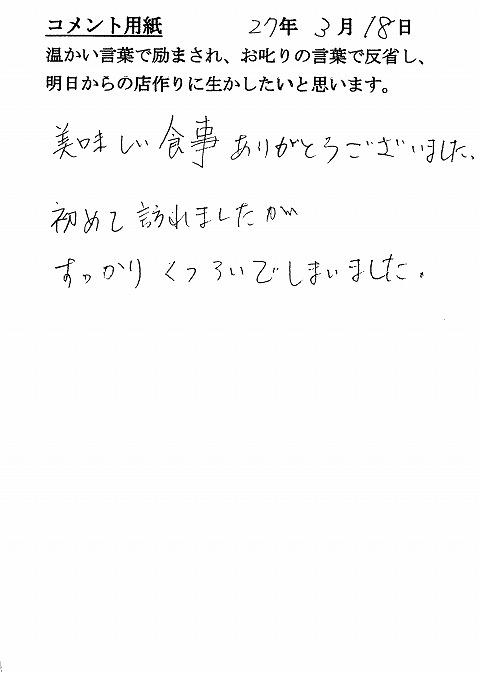 コメント用紙 27年 3月18日
温かい言葉で励まされ、お叱りの言葉で反省し、
明日からの店作りに生かしたいと思います。
美味しい食事ありがとうございました。
初めて訪れましたが
すっかりくつろいでしまいました。